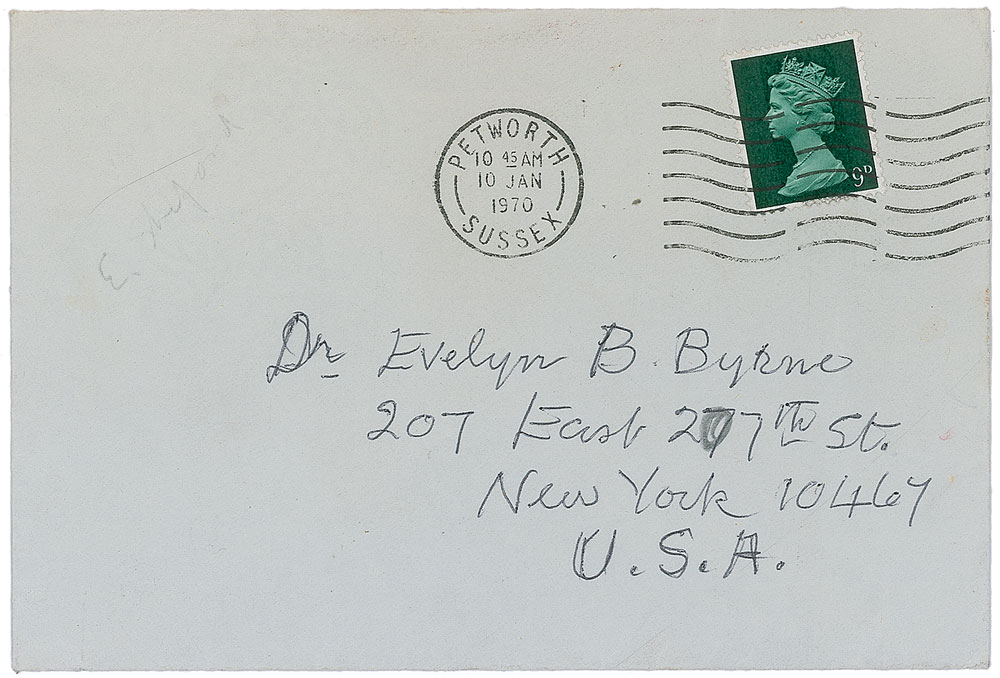 PETWORTH
10 45 AM
10 JAN
1970
SUSSEX
9D
Dr Evelyn B. Byrne
207 East 207TH St.
New York 10467
U.S.A.